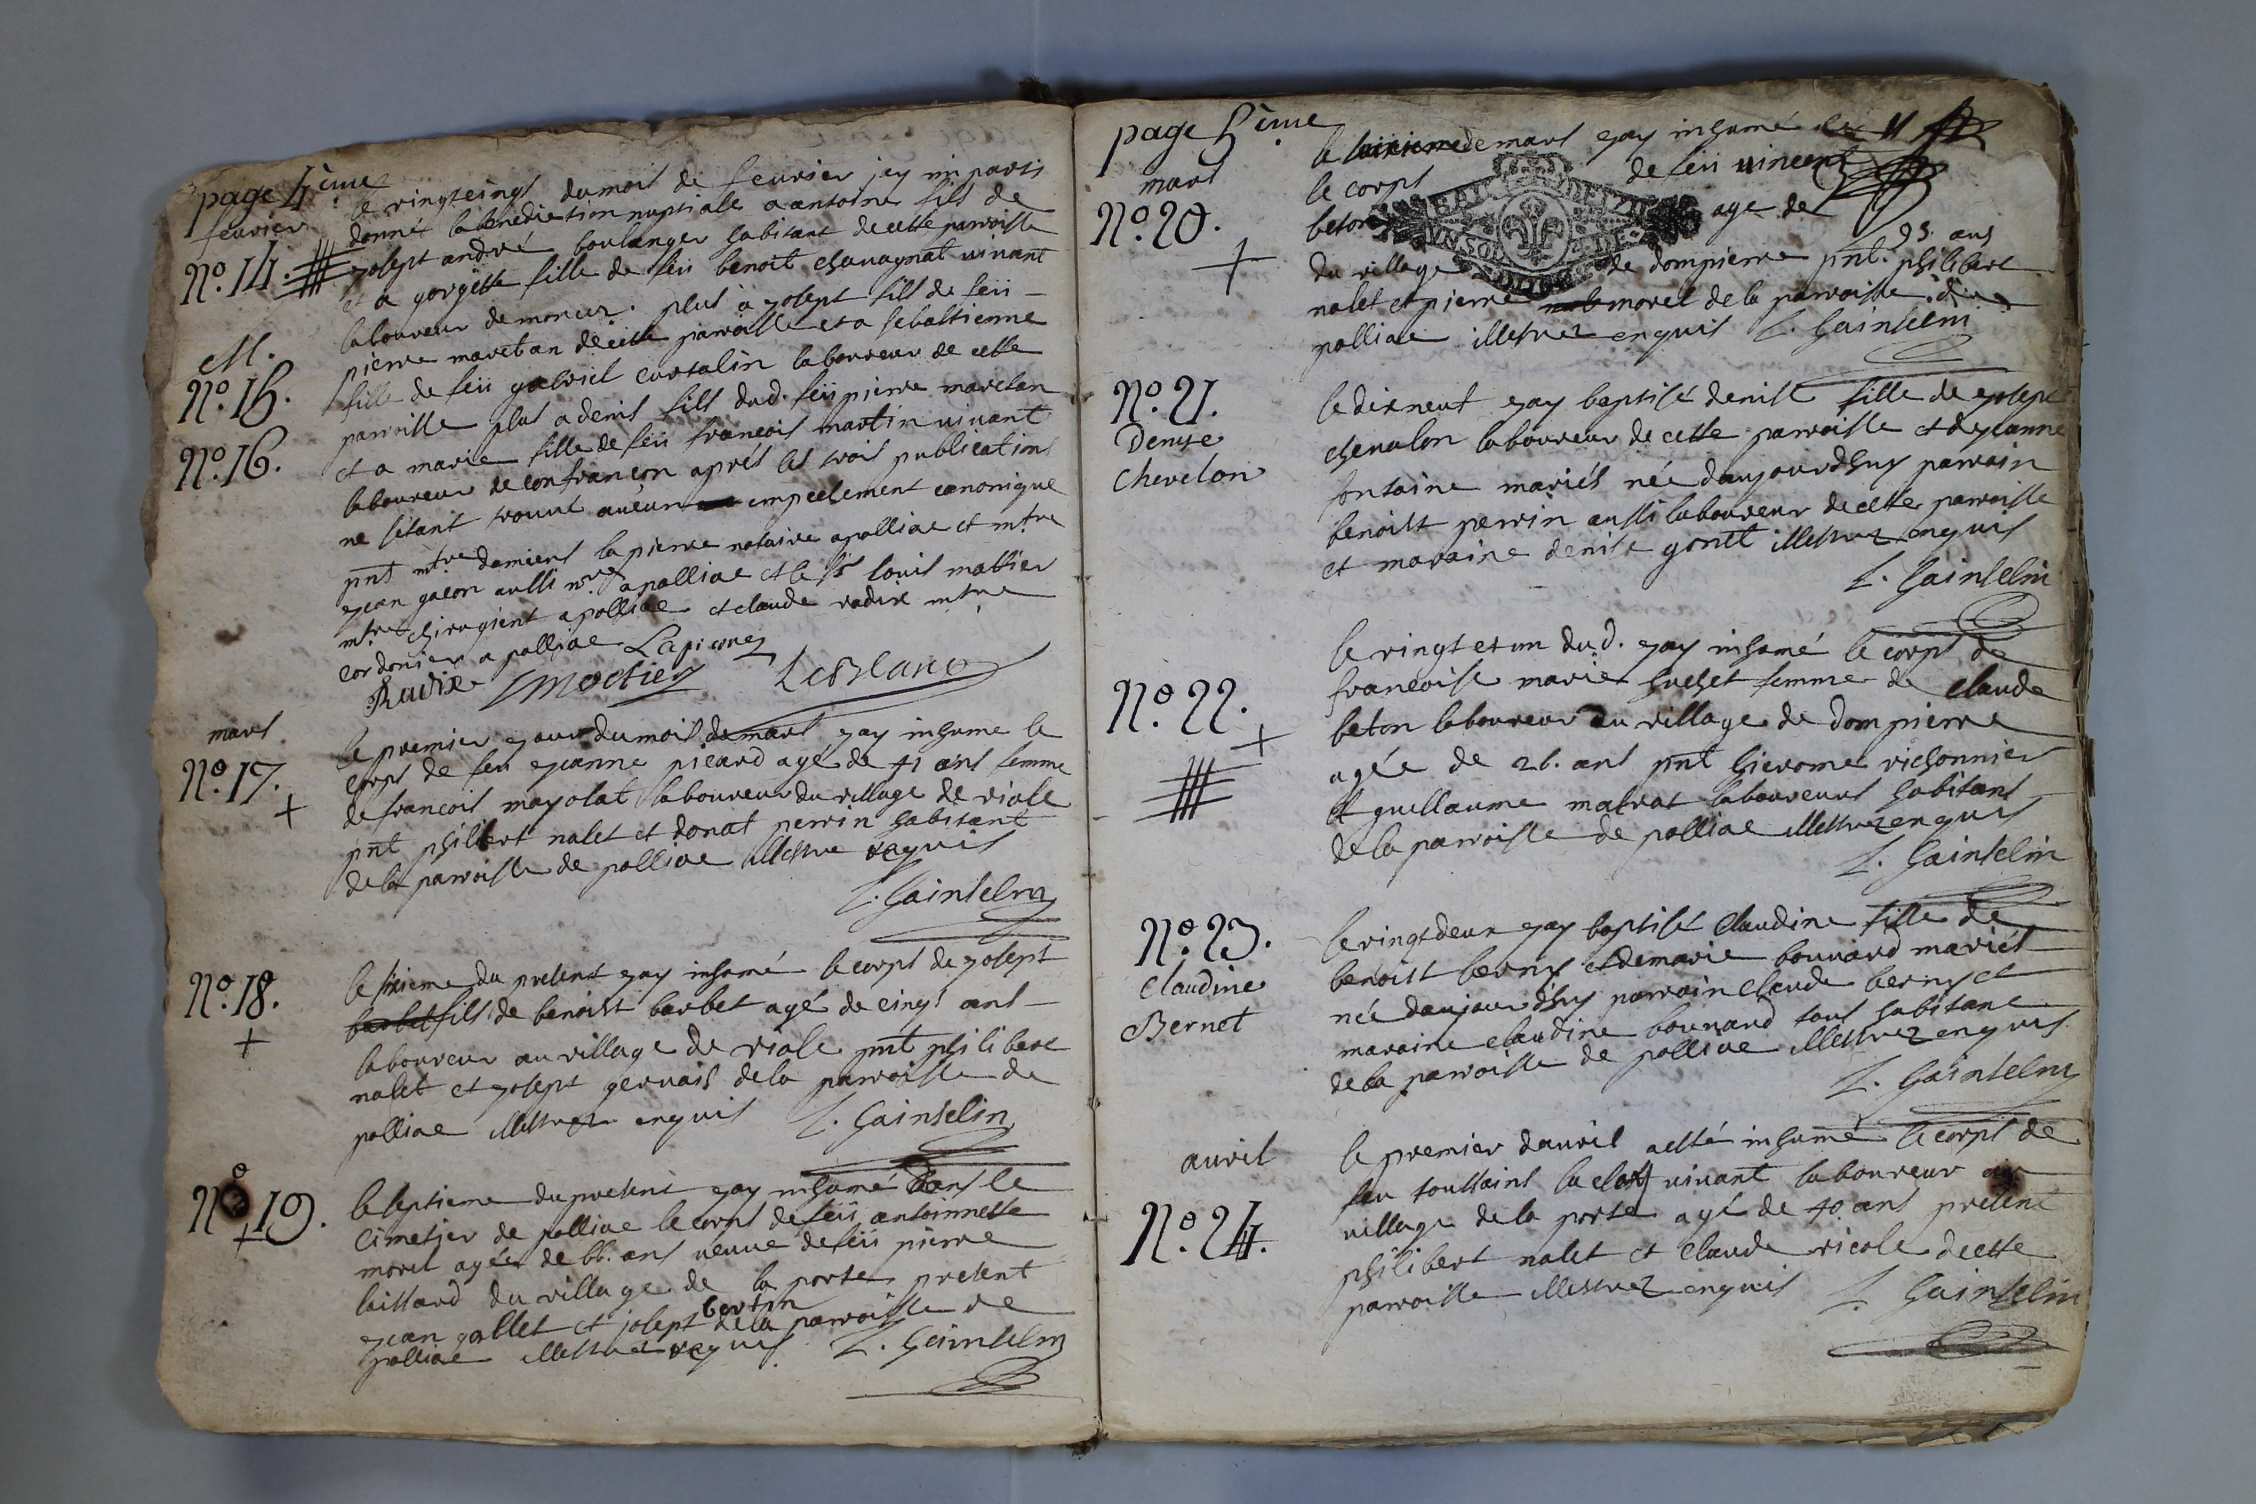 page 4ème
fevrier
le vingtcinq dumois de fevrier jey imparti
donné la benediction nuptiale a antoine fils de
No. 14.
yosept andré boulanger habitant decette parroisse
et a gorgette fille de feu benoit chavagnat vivant
laboureur demoncez. plus a yosept fils de feu
M.
pierre maretan decette parroisse et a sebastienne
No. 15.
fille de feu gabriel cursalin laboureur de cette
parroisse plus a denis fils dud. feu pierre maretan
No. 16.
et a marie fille de feu francois martin vivant
laboureur de confrançon aprés les trois publications
ne sétant trouvé aucun empechement canonique
pnt mtre damiens lapierre notaire apolliac et mtre
yean gacon aussi nre apolliac et le sr louis mottier
mtre chirugient apolliac et claude radix mtre
cordonier a polliac Lapierre
Radix Mottier LeBlanc
mars
le premier your dumois de mars yay inhume le
No. 17.
corps de feu yeanne picard agé de 41 ans femme
+
de francois mayolat laboureur du village de viole
pnt philibert nalet et donat perrin habitant
dela parroisse de polliac illettre requis
L. Gainselin
No. 18.
le sixieme du present yay inhumé le corps de yosept
+
barbet fils de benoist barbet agé de cinqt ans
laboureur au village de viole pnt philibert
nalet et yosept gervais dela parroisse de
polliac illettrez enquis L. Gainselin
No. 19.
le septieme du present yay inhumé dans le
+
cimetier de polliac le corps de feu antoinnette
morel agée de 66. ans veuve de feu pierre
laissard du village de la porte present
bertin
yean gollet et josept dela parroisse de
polliac illettrez requis L. Gainselin
page 5ème
mars
le de mars yay inhumé
le corps de feu vincent
No. 20.
beton age de
95. ans
+
du village de dompierre pnt. philibert
nalet et pierre morel de la parroisse de
polliac illettrez enquis L. Gainselin
No. 21.
le dixneuf yay baptisé denise fille de yosept
Denyse
chevalon laboureur de cette parroisse et de yeanne
Chevelon
fontaine mariés née daujourdhuy parrain
benoist perrin aussi laboureur decette parroisse
et maraine denise gonet illettrez enquis
L. Gainselin
le vingt et un dud. yay inhumé le corps de
No. 22.
francoise marie huchet femme de claude
+
beton laboureur du village de dompierre
agée de 26. ans pnt hierome richonnier
et guillaume malvat laboureurs habitans
dela parroisse de polliac illettrez enquis
L. Gainselin
No. 23.
le vingtdeux yay baptisé claudine fille de
Claudine
benoist berny et de marie bouvard mariés
Bernet
née daujourdhuy parrain claude berny et
maraine claudine bouvard tous habitant
dela parroisse de polliac illettrez enquis
L. Gainselin
avril
le premier davril a esté inhumé le corps de
feu toussaint vivant laboureur au
No. 24.
village de la porte agé de 40 ans present
philibert nalet et claude viole decette
parroisse illettrez enquis L. Gainselin